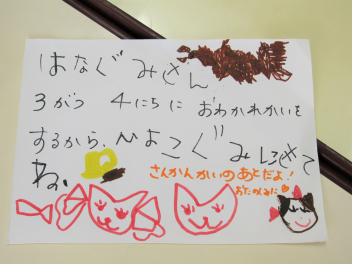 はなぐみさん
3がつ 4にちに おわかれかいを
するから、ひよこぐみにきて
ね。
さんかんかいのあとだよ!
おたのしみに